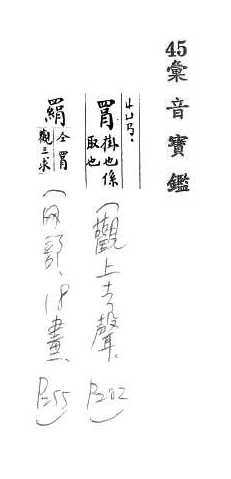 45彙音寶鑑
ㄐㄩㄢˋ
罥掛也係取也(觀上去聲、P202)
羂仝罥觀三求(网部、18畫、P255)